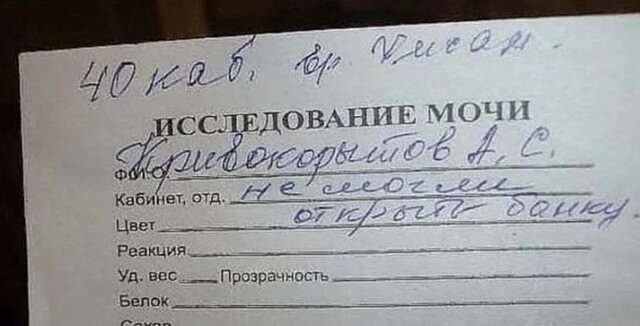 40 каб. вр.
ИССЛЕДОВАНИЕ МОЧИ
ФИО Кривокорытов А. С.
Кабинет, отд. не могли
Цвет открыть банку.
Реакция
Уд. вес Прозрачность
Белок
Сахар